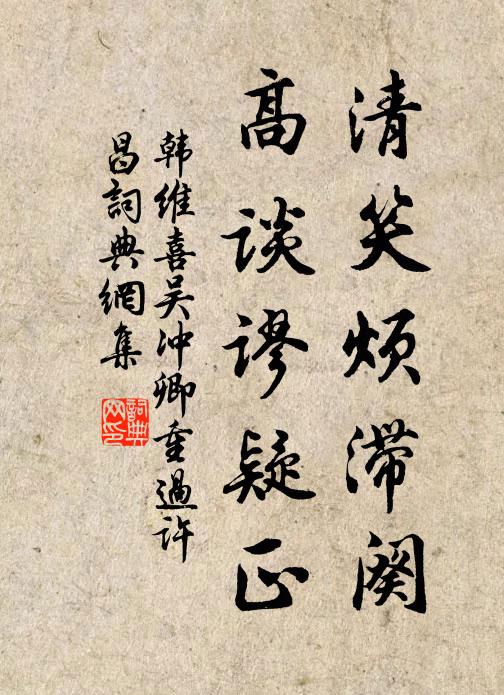 清笑烦滞阕
高谈谬疑正
韩维喜吴冲卿重過许
昌詞典網集
詞典网印